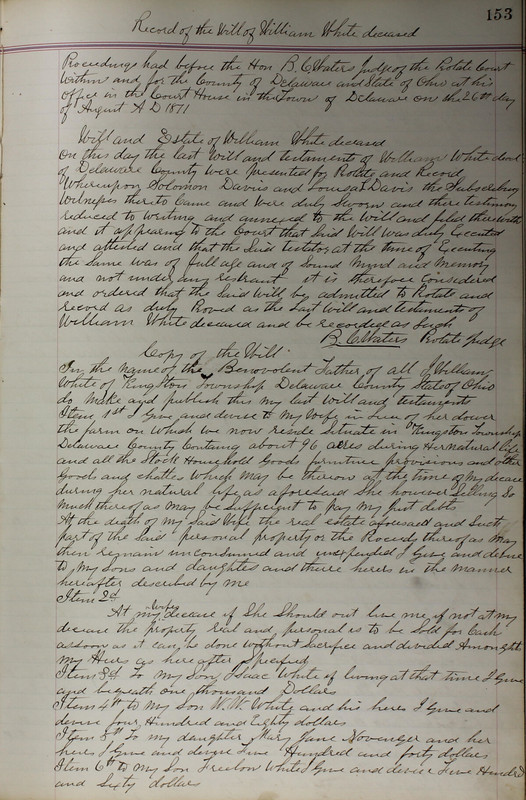 153
Record of the Will of William White deceased
Proceedings had before the Hon B. C. Waters Judge of the Probate Court
Within and for the County of Delaware and State of Ohio at his
Office in the Court House in the Town of Delaware on the 26th day
of August A D 1871
Will and Estate of William White deceased
On this day the last Will and testament of William White decd
of Delaware County Were presented for Probate and Record
Whereupon Solomon Davis and Louisa Davis the Subscribing
Witnesses thereto Came and Were duly Sworn and there testimony
reduced to Writing and annexed to the Will and filed therewith
and it appearing to the Court that Said Will was duly Executed
and attested and that the Said testator at the time of Executing
the Same was of full age and of Sound Mind and Memory
and not under any restraint it is therefore Considered
and ordered that the Said Will be admitted to Probate and
record as duly Proved as the Last Will and testament of
William White deceased and be recorded as Such
B. C. Waters Probate Judge
Copy of the Will
In the name of the Benevolent Father of all I William
White of Kingston Township Delaware County State of Ohio
do Make and publish this my last will and testament
Item 1st I Give and devise to My Wife in Lieu of her dower
the farm on Which we now reside Situate in Kingston Township
Delaware County Containg about 96 acres during Her natural life
and all the Stock Household Goods furniture provisions and other
Goods and chattles which May be thereon at the time of my decease
during her natural life as aforesaid She however Selling So
Much thereof as may be Sufficient to Pay My just debts
At the death of My Said Wife the real estate aforesaid and Such
part of the Said personal property or the Proceeds thereof as May
then remain unconsumed and unexpended I Give and devise
to My Sons and daughter and there heirs in the manner
hereafter described by me
Item 2d
At my Wifes decease if She Should out live me if not at my
decease the property real and personal is to be Sold for Cash
as soon as it can be done without Sacrifice and divided Amongst
My Heirs as hereafter Specified
Item 3d To My Son Isaac White if living at that time I Give
and bequeath one thousand Dollars
Item 4th to My Son W. W. White and his heirs I Give and
devise four Hundred and Eighty dollars
Item 5th To my daughter Mary Jane and her
heirs I Give and devise Five Hundred and forty dollars
Item 6th to My Son White I Give and devise Five Hundred
and Sixty dollars